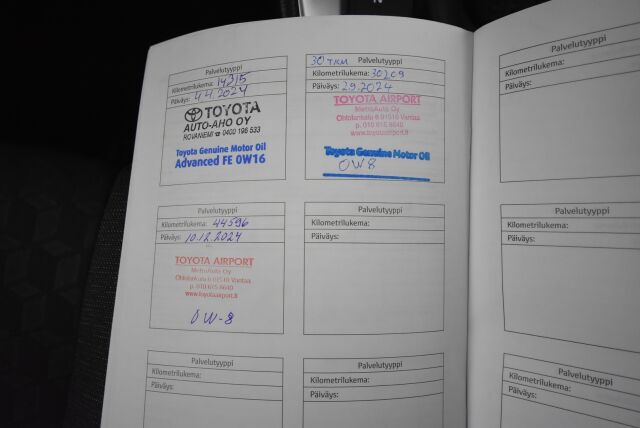 Palvelutyyppi
Kilometrilukema: 14315
Päiväys: 4.4.2024
TOYOTA
AUTO-AHO OY
ROVANIEMI ☎ 0400 196 533
Toyota Genuine Motor Oil
Advanced FE 0W16
30 TKM Palvelutyyppi
Kilometrilukema: 30209
Päiväys: 2.9.2024
TOYOTA AIRPORT
MetroAuto Oy
Ohtolankatu 6 01510 Vantaa
p. 010 615 8640
www.toyotaairport.fi
Toyota Genuine Motor Oil
0W8
Palvelutyyppi
Kilometrilukema:
Päiväys:
Palvelutyyppi
Kilometrilukema: 44596
Päiväys: 10.12.2024
TOYOTA AIRPORT
MetroAuto Oy
Ohtolankatu 6 01510 Vantaa
p. 010 615 8640
www.toyotaairport.fi
0W-8
Palvelutyyppi
Kilometrilukema:
Päiväys:
Palvelutyyppi
Kilometrilukema:
Päiväys:
Palvelutyyppi
Kilometrilukema:
Päiväys:
Palvelutyyppi
Kilometrilukema:
Päiväys:
Palvelutyyppi
Kilometrilukema:
Päiväys: